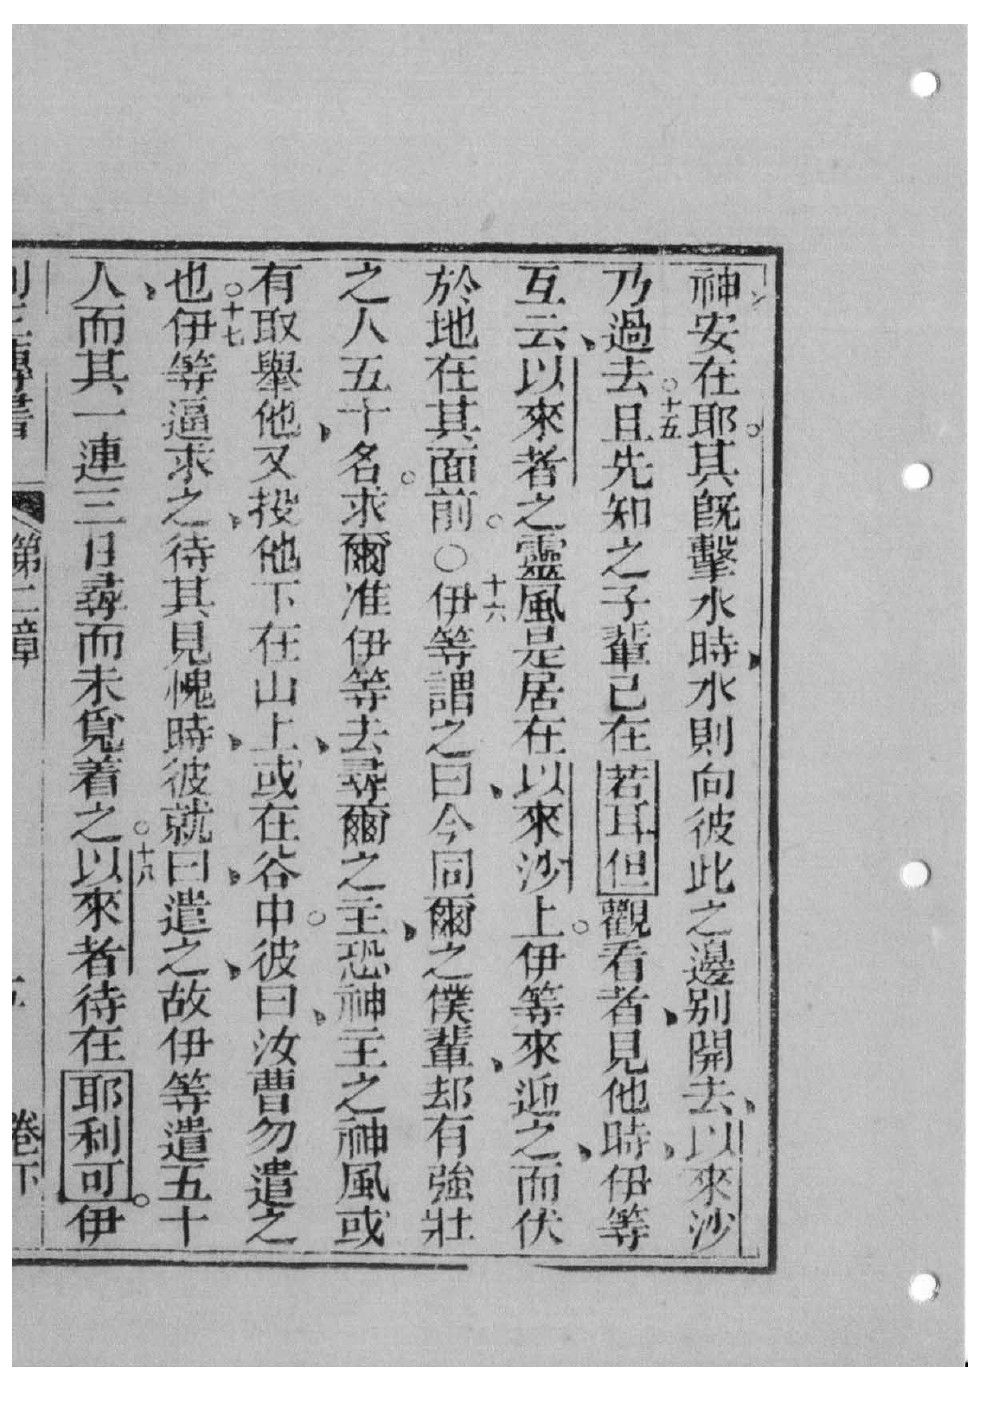 神安在耶。其旣擊水時、水則向彼此之邊別開去、以來沙
乃過去。○十五且先知之子輩已在若耳但觀看者、見他時、伊等
互云、以來者之靈風是居在以來沙上。伊等來迎之、而伏
於地在其面前。○十六伊等謂之曰、今同爾之僕輩、却有強壯
之人五十名。求爾准伊等去尋爾之主、恐神主之神風或
有取舉他、又投他下在山上、或在谷中。彼曰、汝曹勿遣之
也。○十七伊等逼求之、待其見愧時、彼就曰、遣之、故伊等遣五十
人、而其一連三日尋而未覓着之。○十八以來者待在耶利可。伊
第二章
卷下